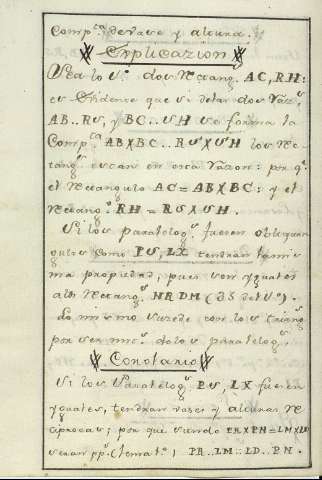 Comp.ta de vase y altura.
Explicazion
Vea lo v.e dos Rectang. AC, RH:
es Evidente que si de las dos Vaz.s
AB..RS, y BC..SH se forma la
Comp.ta ABXBC..RSXSH los Re-
tang.s estan en esta Vazon: por q.e
el Rectangulo AC=ABXBC: y el
Rectang.o RH=RSXSH.
Si los paralelog.s fueren obliquan-
gulos como PS, LX tendran la mis-
ma propiedad, pues son yguales
a los Rectang.s NR DM (
Lo mismo sucede con los triang.s
por ser mit.d de los paralelog.s
Corolario
Si los Paralelog.s PS, LX fueren
yguales, tendran vases y alturas Re-
ciprocas; por que siendo PRXPN=LMXLD
seran pp.s PR..LM::LD..PN.